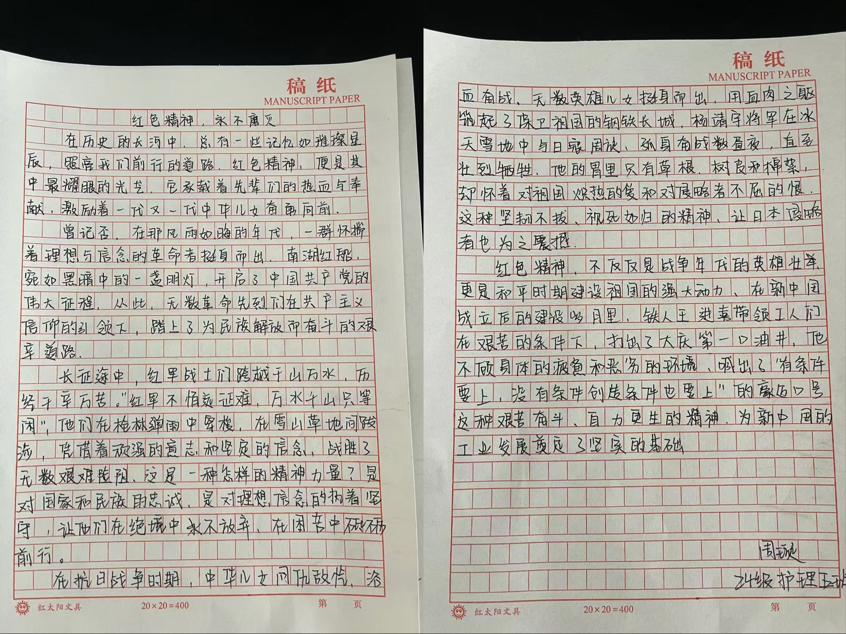 稿纸
MANUSCRIPT PAPER
红色精神,永不褪色
在历史的长河中,总有一些记忆如璀璨星
辰,照亮我们前行的道路.红色精神,便是其
中最耀眼的光芒,它承载着先辈们的热血与奉
献,激励着一代又一代中华儿女奋勇向前.
曾记否,在那风雨如晦的年代,一群怀揣
着理想与信念的革命者挺身而出,南湖红船,
宛如黑暗中的一盏明灯,开启了中国共产党的
伟大征程,从此,无数革命先烈们在共产主义
信仰的引领下,踏上了为民族解放而奋斗的艰
辛道路.
长征途中,红军战士们跨越千山万水,历
经千辛万苦."红军不怕远征难,万水千山只等
闲",他们在枪林弹雨中穿梭,在雪山草地间跋
涉,凭借着顽强的意志和坚定的信念,战胜了
无数艰难险阻.这是一种怎样的精神力量?是
对国家和民族的忠诚,是对理想信念的执着坚
守,让他们在绝境中永不放弃,在困苦中砥砺
前行。
在抗日战争时期,中华儿女同仇敌忾,浴
红太阳文具
20×20=400
第 页
稿纸
MANUSCRIPT PAPER
血奋战、无数英雄儿女挺身而出,用血肉之躯
筑起了保卫祖国的钢铁长城,杨靖宇将军在冰
天雪地中与日寇周旋,孤身奋战数昼夜,直至
壮烈牺牲,他的胃里只有草根,树皮和棉絮,
却怀着对祖国炽热的爱和对侵略者不屈的恨.
这种坚韧不拔、视死如归的精神、让日本侵略
者也为之震撼.
红色精神,不仅仅是战争年代的英雄壮举
更是和平时期建设祖国的强大动力、在新中国
成立后的建设岁月里,铁人王进喜带领工人们
在艰苦的条件下,打出了大庆第一口油井,他
不顾身体的疲惫和恶劣的环境,喊出了"有条件
要上,没有条件创造条件也要上"的豪迈口号
这种艰苦奋斗、自力更生的精神,为新中国的
工业发展奠定了坚实的基础
24级护理
红太阳文具
20×20=400
第 页